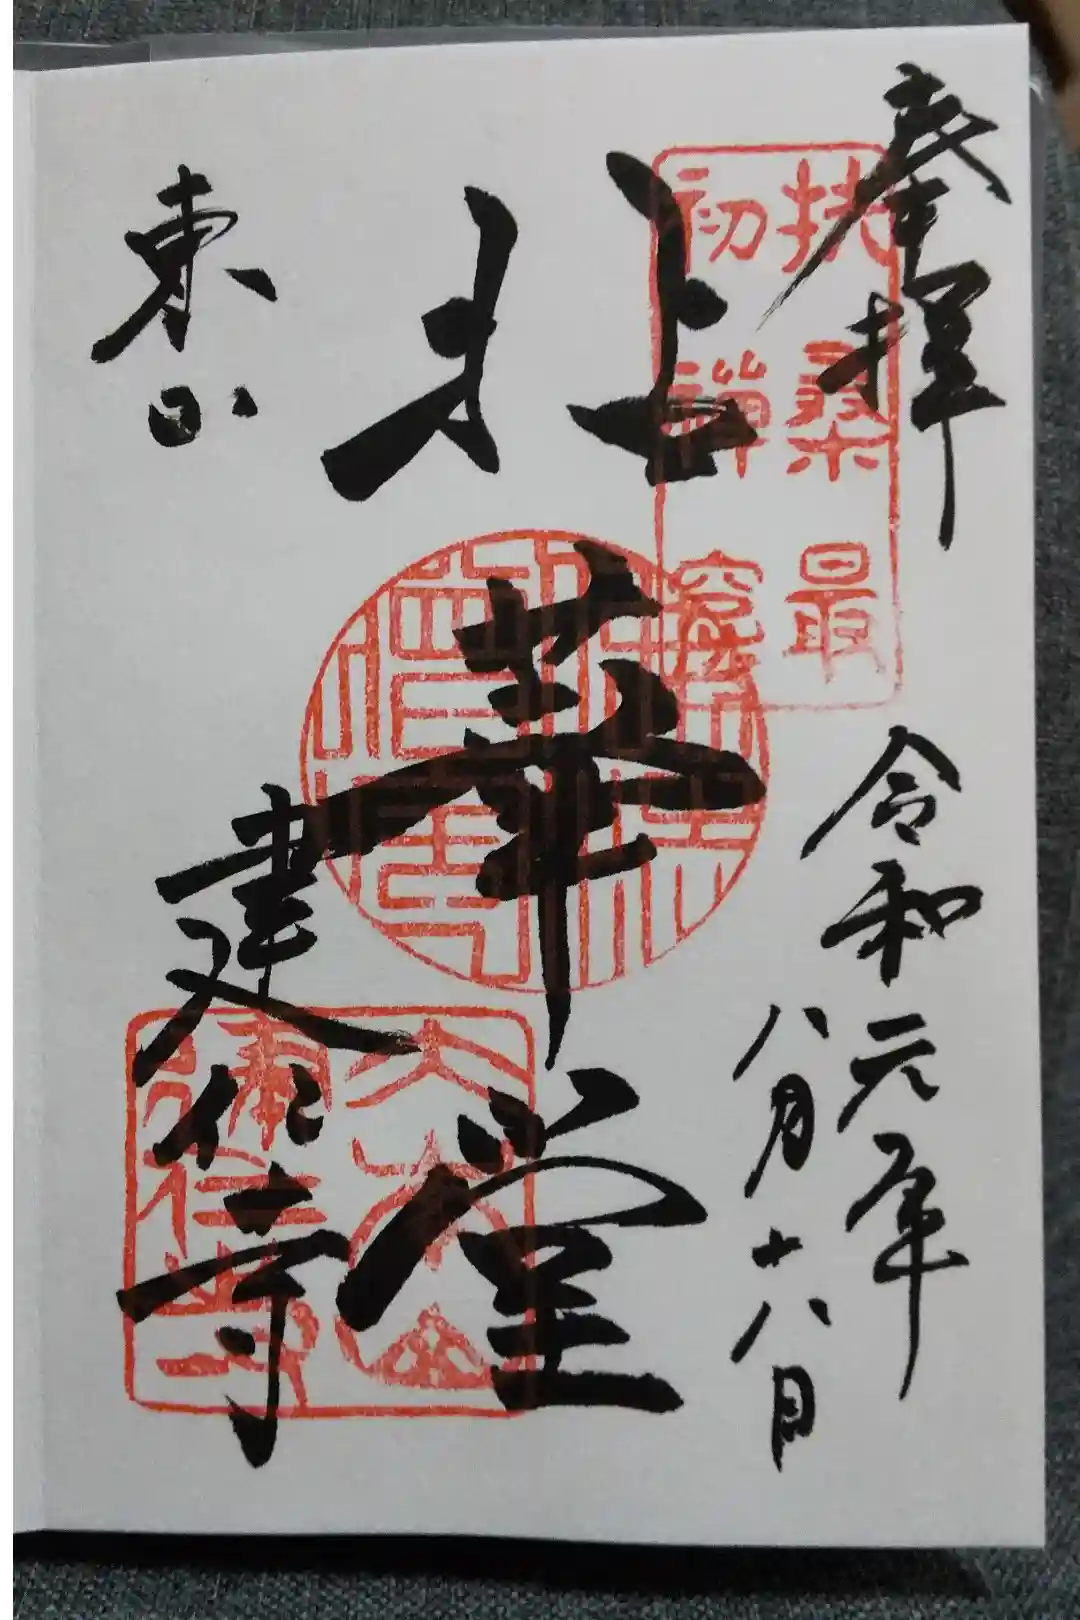 奉拝
扶桑最
初禪窟
令和元年
八月十八日
拈華堂
東山
建仁寺
大本山
建仁寺